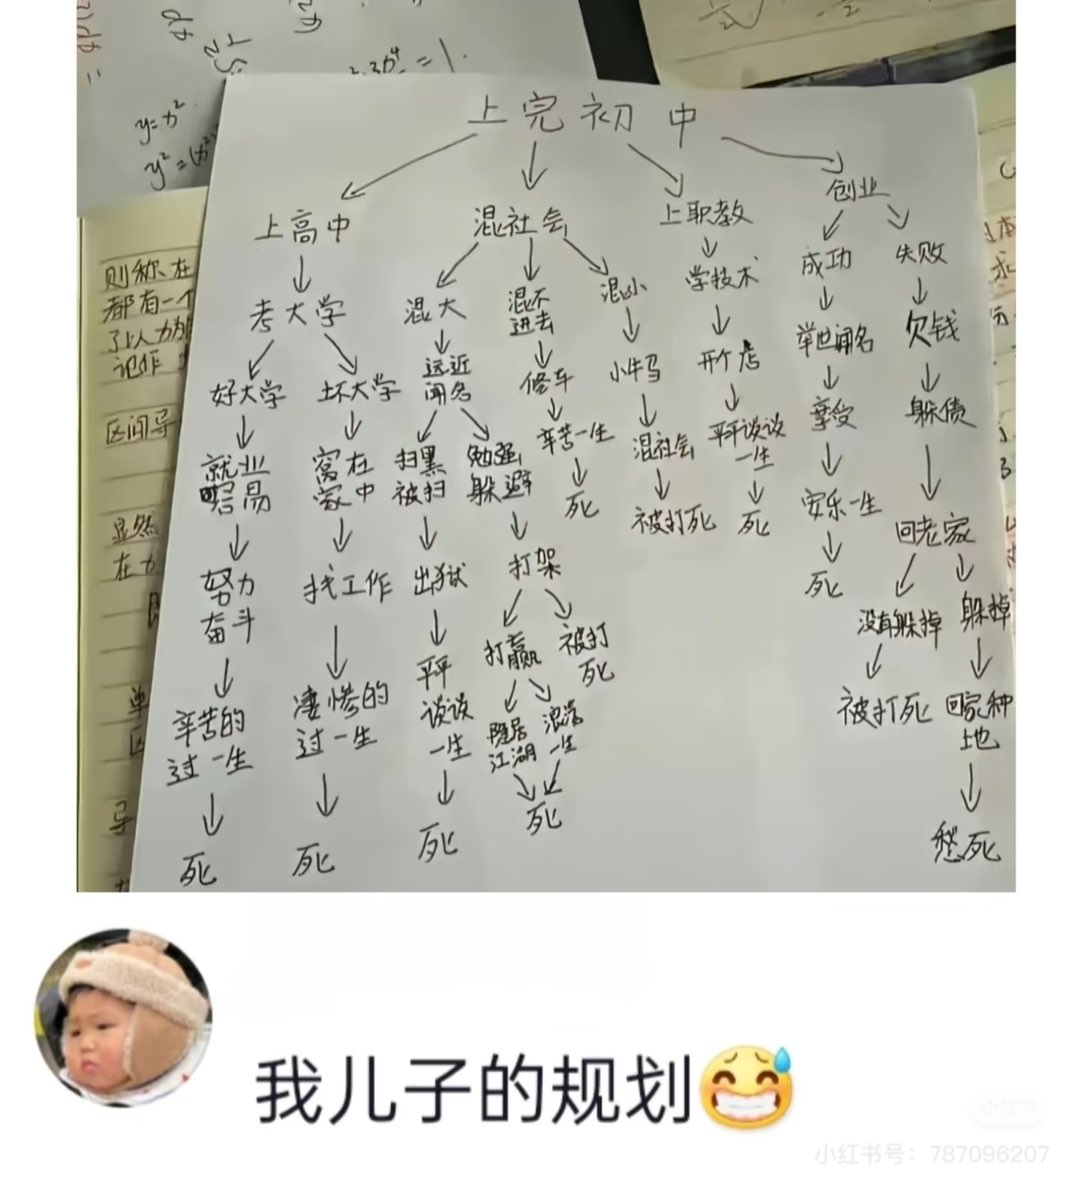 y=x²
上完初中
上高中
混社会
上职教
创业
考大学
混大
混不
进去
混小
学技术
成功
失败
好大学
坏大学
远近
闻名
修车
小牛马
开个店
举世闻名
欠钱
就业
容易
窝在
家中
扫黑
被扫
勉强
躲避
辛苦一生
死
混社会
被打死
平平谈谈
一生
死
享受
安乐一生
死
躲债
回老家
努力
奋斗
找工作
出狱
打架
没有躲掉
躲掉
辛苦的
过一生
凄惨的
过一生
平平
谈谈
一生
打赢
被打
死
隐居
江湖
浪荡
一生
被打死
回家种
地
死
死
死
死
愁死
则称在
都有一个
记作
区间
显然
在
我儿子的规划😅
小红书
小红书号：787096207